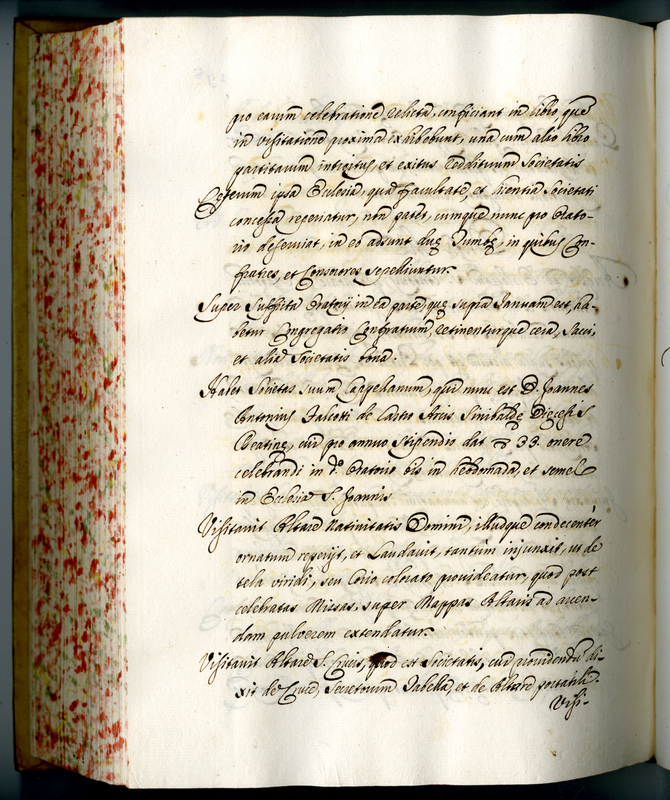 pro earum celebratione relicta, conficiant in libro, que
in visitatione proxima exhibebunt, una cum alio libro
partitarum introitus, et exitus reddituum societatis
Ceterum ipsa Ecclesia, qua facultate, et licentia societati
concessa reperiatur, non patet, cumque nunc pro Orato-
rio deserviat, in eo adsunt duę Tumbę, in quibus Con-
fratres, et Consorores sepelliuntur.
Super Oratorij in ea parte, que supra Januam est, ha-
betur Congregatio Confratrum, retinenturque cera, sacci,
et alia societatis bona.
Habet Societas suum Cappellanum, qui nunc est D. Joannes
Antonius Falcotti de Castro Arcis Sinibaldę Dięcesis
Reatinę, cui pro annuo stipendio dat 33. onere
celebrandi in d.º Oratorio bis in hebdomada, et semel
in Ecclesia S. Joannis
Visitavit Altare Nativitatis Domini, illudque condecenter
ornatum reperijt, et Laudavit, tantum injunxit, ut de
tela viridi, seu Corio colorato provideatur, quod post
celebratas Missas, super Mappas Altaris ad arcen-
dam pulverem extendatur.
Visitavit Altare S. Crucis, quod est Societatis, cui providendu di-
xit de Cruce, Secretorum Tabella, et de Altare portatili.
Visi-